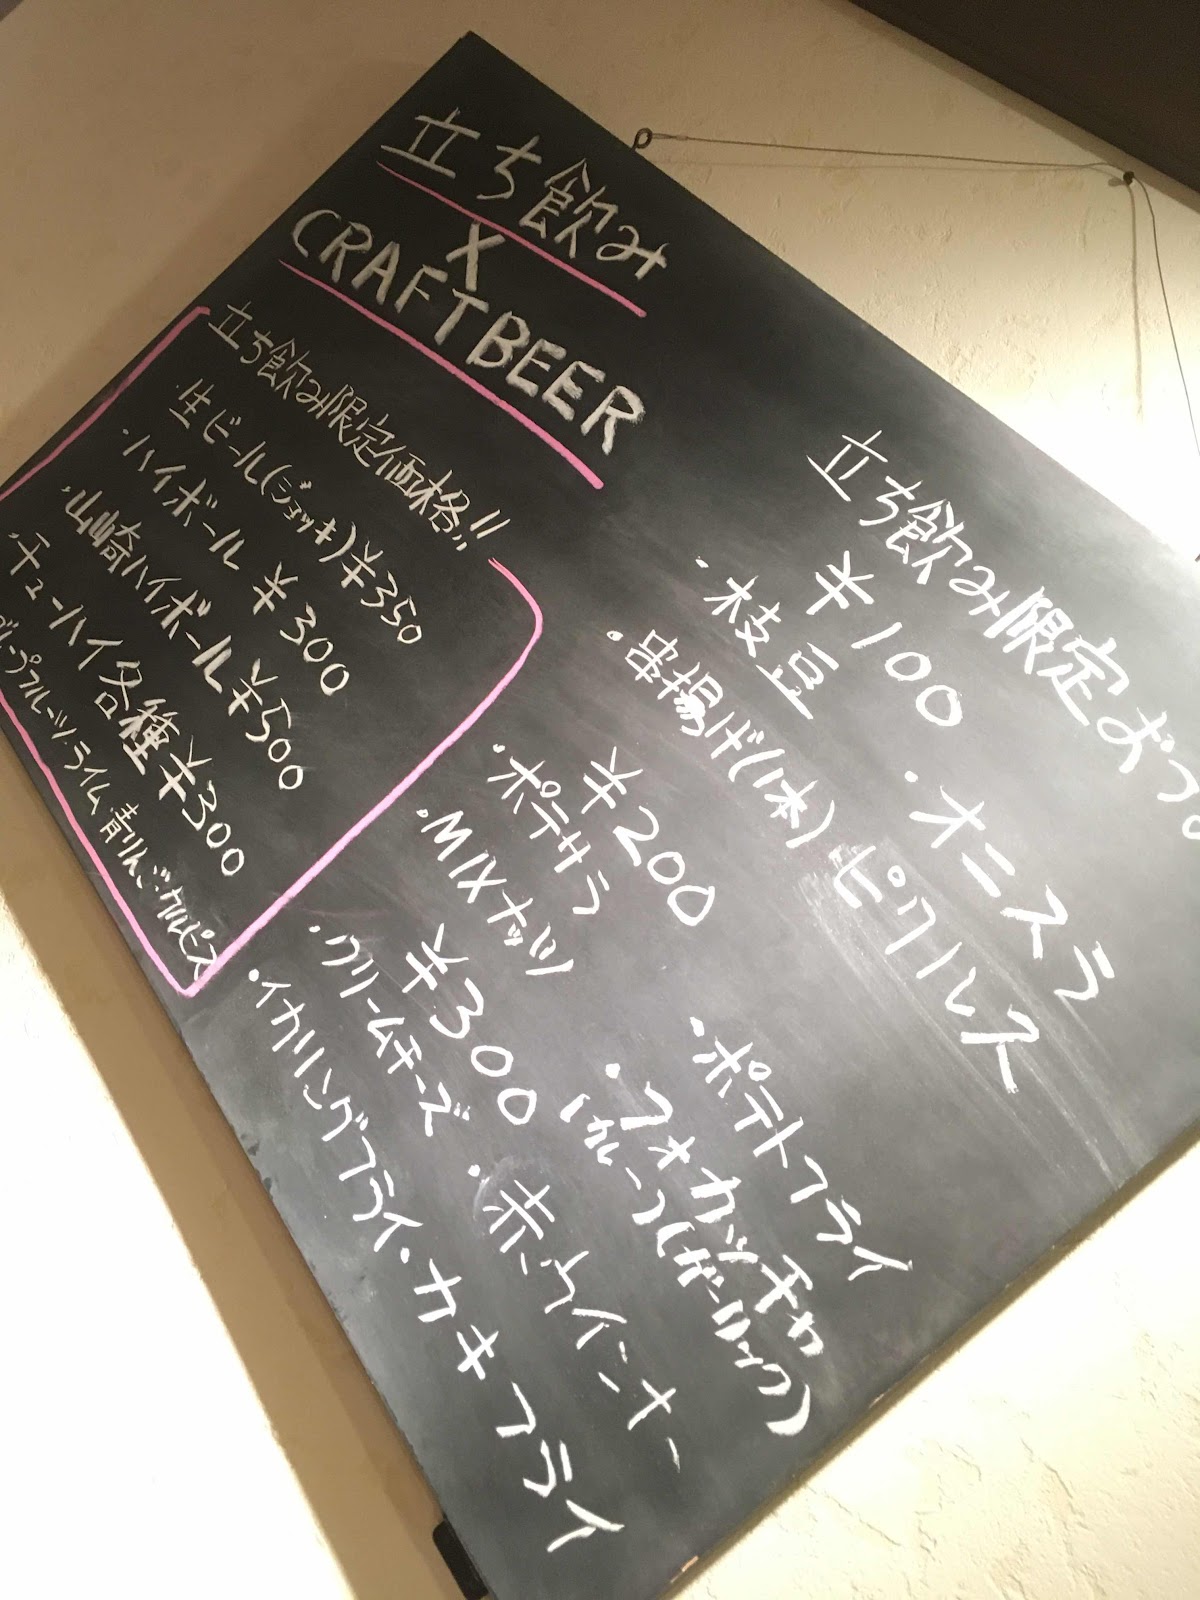 立ち飲み
X
CRAFTBEER
立ち飲み限定価格!!
・生ビール(ジョッキ)¥350
・ハイボール ¥300
・山崎ハイボール¥500
・チューハイ各種¥300
グレープフルーツ・ライム・青りんご・カルピス
立ち飲み限定おつ
¥100
・枝豆 ・オニスラ
・串揚げ(1本) ピクルス
¥200
・ポテサラ ・ポテトフライ
・MIXナッツ ・フォカッチャ
1カルーフ(ガーリック)
¥300
・クリームチーズ ・赤ウインナー
・イカリングフライ・カキフライ